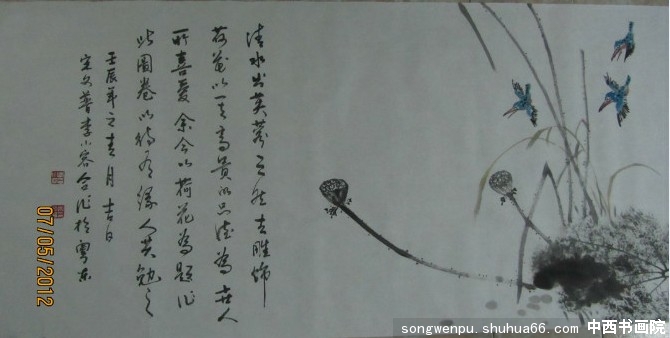 清水出芙蓉天然去雕饰
荷花以其高贵的品德为世人
所喜爱余今以荷花为题作
此图卷以待有缘人共勉之
壬辰年之吉月吉日
宋文普李小容合作於粤东
07/05/2012
songwenpu.shuhua66.com 中西书画院